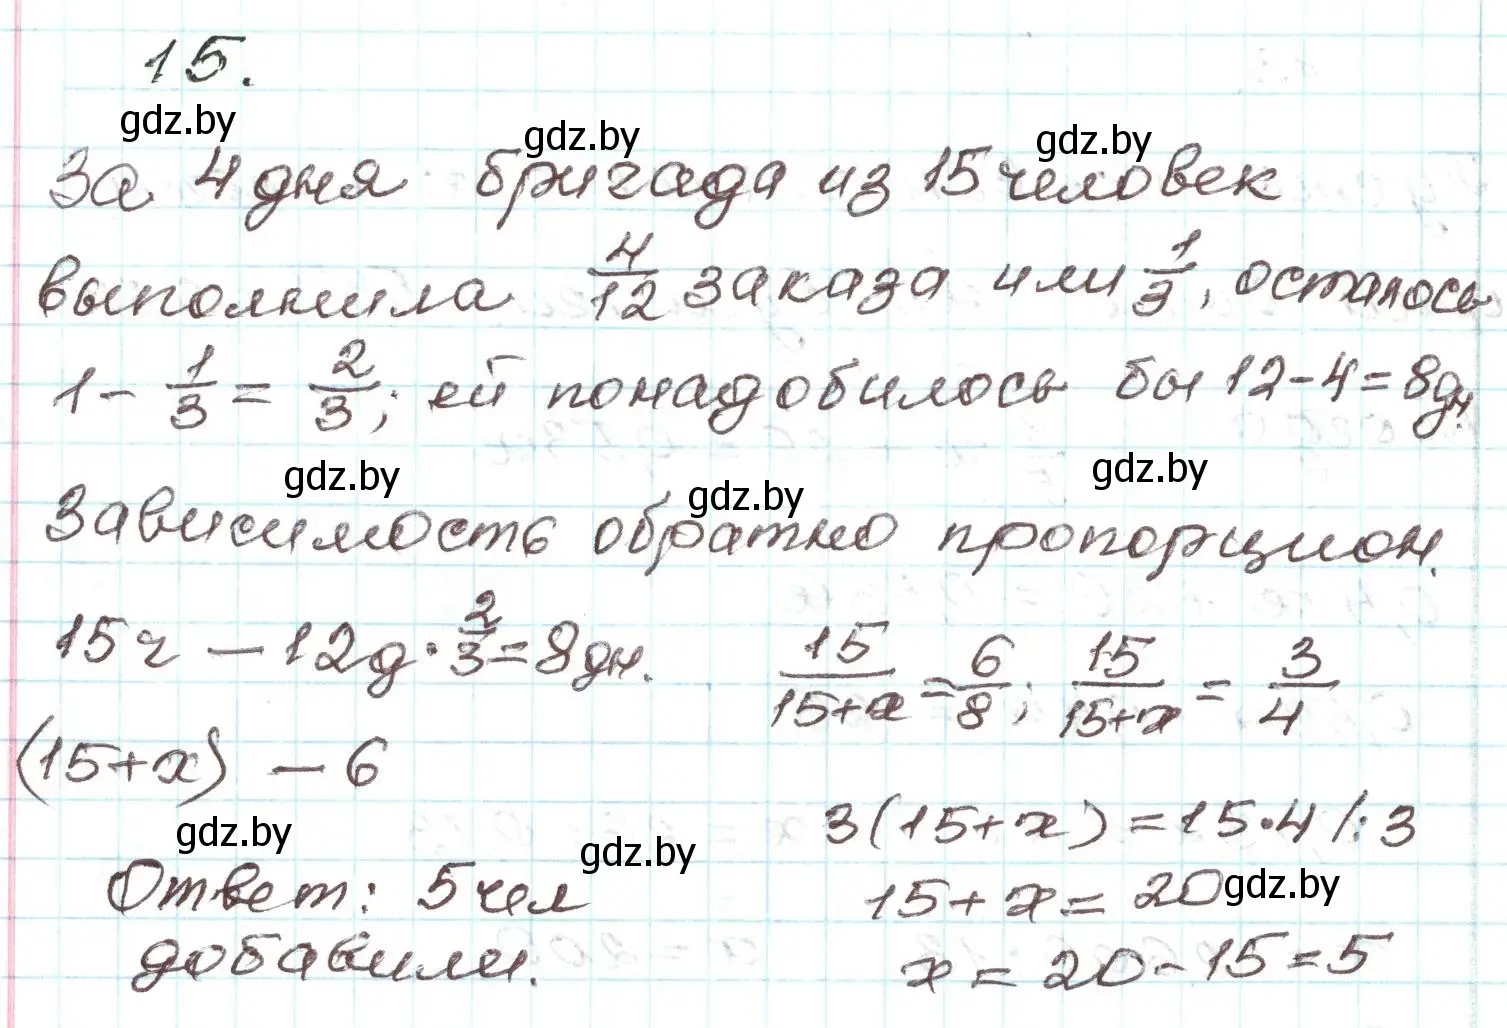 15.
gdz.by
gdz.by
gdz.by
За 4 дня бригада из 15 человек
выполнила 4/12 заказа или 1/3, осталось
1 - 1/3 = 2/3; ей понадобилось бы 12-4=8дн.
gdz.by
gdz.by
gdz.by
Зависимость обратно пропорцион.
15ч — 12д · 2/3 = 8дн.
(15+x) — 6
15/(15+x) = 6/8; 15/(15+x) = 3/4
3(15+x) = 15·4 /:3
15+x = 20
x = 20-15=5
gdz.by
gdz.by
gdz.by
Ответ: 5 чел
добавили.